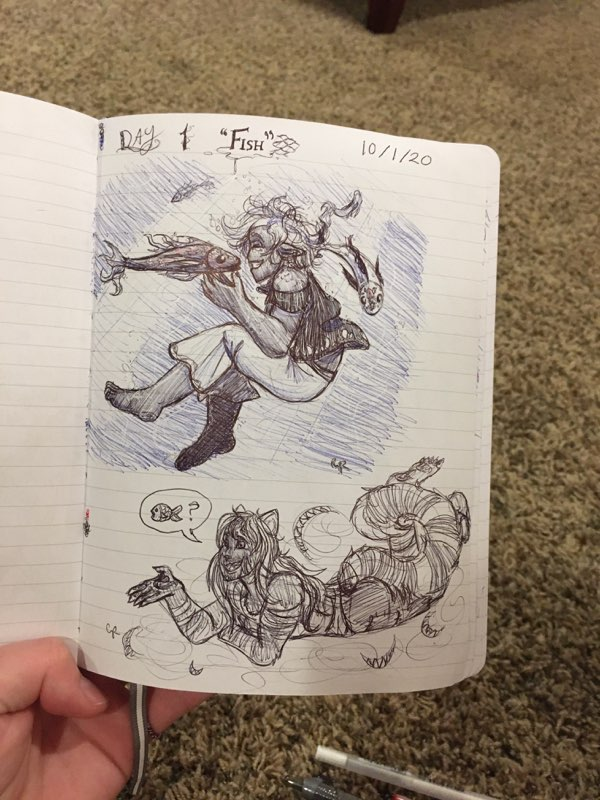 DAY 1 "FISH" 10/1/20
CR
?
CR